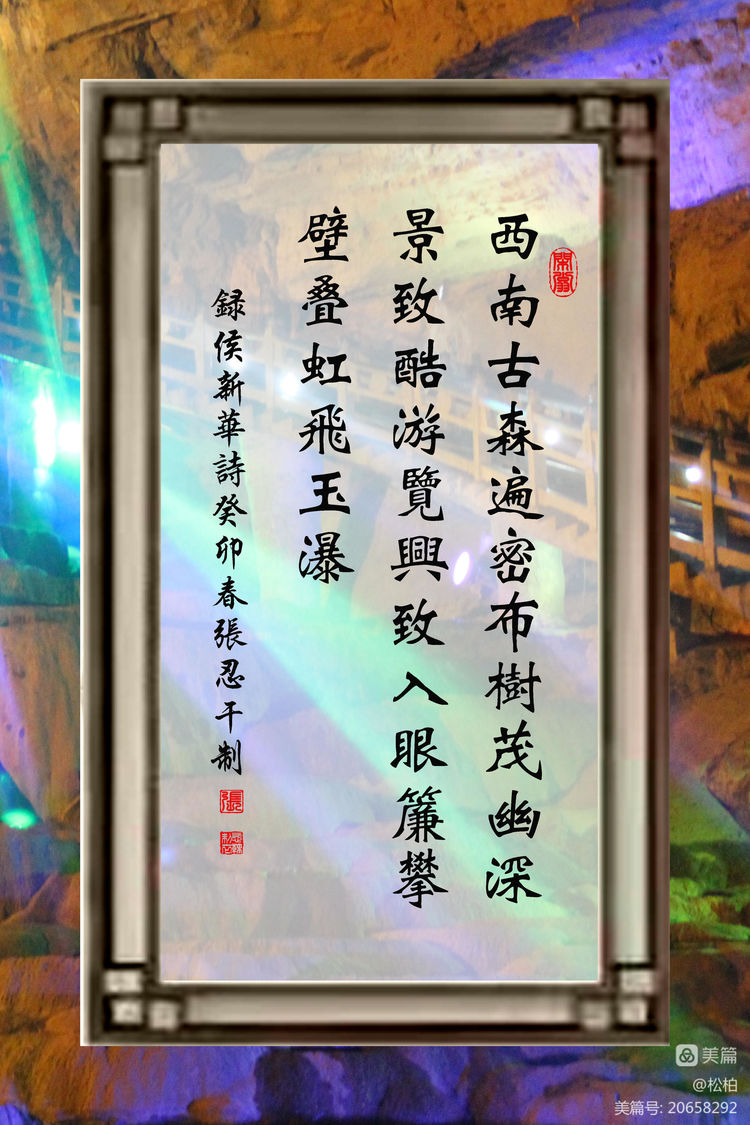 西南古森遍密布樹茂幽深
景致酷游覽興致入眼簾攀
壁叠虹飛玉瀑
録侯新華詩癸卯春張忍干制
張
美篇
@松柏
美篇号: 20658292